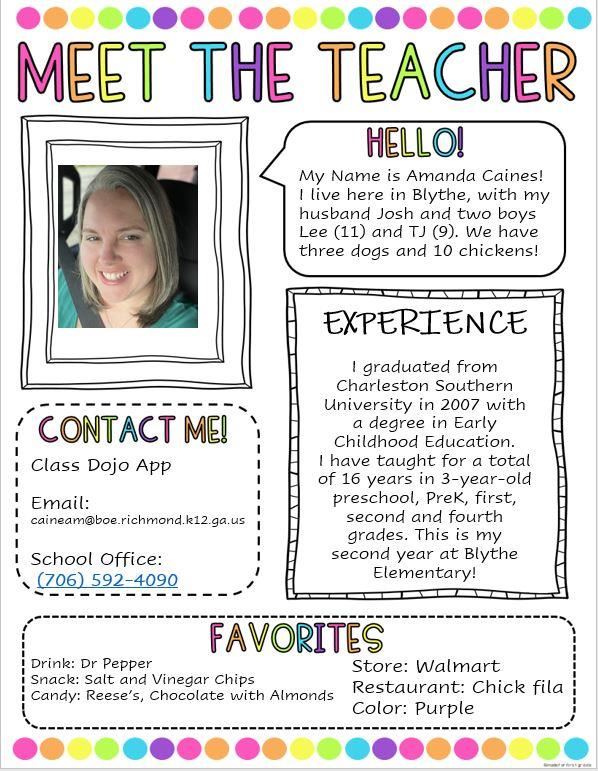 MEET THE TEACHER
HELLO!
My Name is Amanda Caines!
I live here in Blythe, with my
husband Josh and two boys
Lee (11) and TJ (9). We have
three dogs and 10 chickens!
EXPERIENCE
I graduated from
Charleston Southern
University in 2007 with
a degree in Early
Childhood Education.
I have taught for a total
of 16 years in 3-year-old
preschool, PreK, first,
second and fourth
grades. This is my
second year at Blythe
Elementary!
CONTACT ME!
Class Dojo App
Email:
caineam@boe.richmond.k12.ga.us
School Office:
(706) 592-4090
FAVORITES
Drink: Dr Pepper
Snack: Salt and Vinegar Chips
Candy: Reese's, Chocolate with Almonds
Store: Walmart
Restaurant: Chick fila
Color: Purple